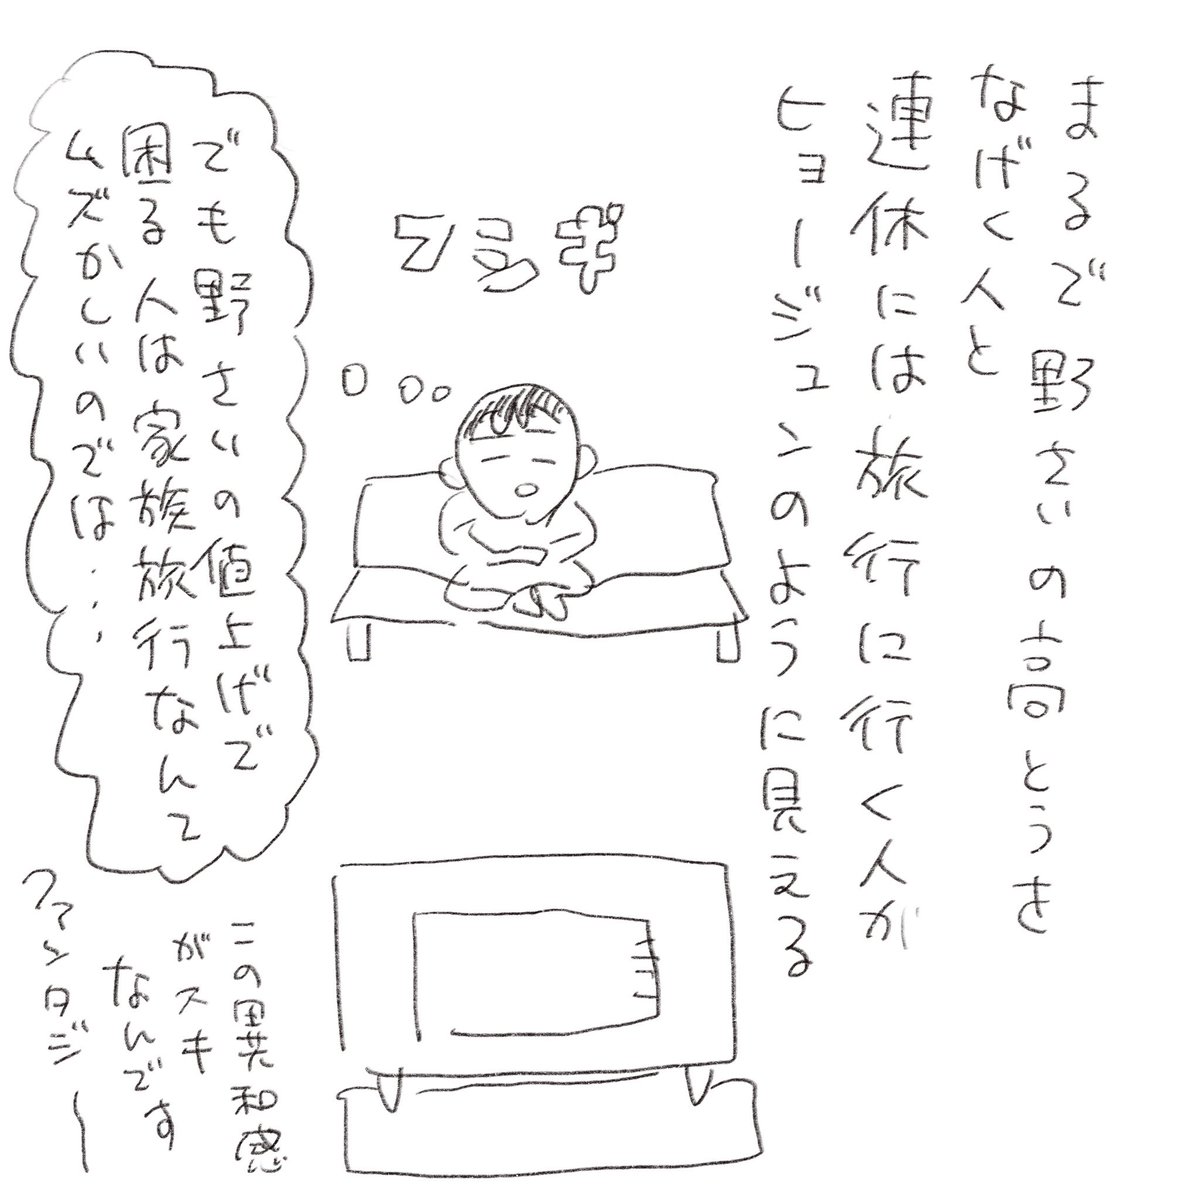 まるで野さいの高とうを
なげく人と
連休には旅行に行く人が
ヒョージュンのように見える
でも野さいの値上げで
困る人は家族旅行なんて
ムズかしいのでは・・・
この異和感
がスキ
なんです
ファンタジー